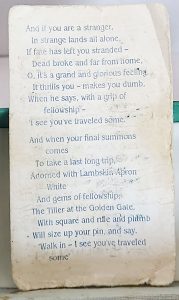 And if you are a stranger,
In strange lands all alone,
If fate has left you stranded –
Dead broke and far from home,
O, it's a grand and glorious feeling
It thrills you – makes you dumb,
When he says, with a grip of
fellowship
I see you've traveled some.
And when your final summons
comes
To take a last long trip,
Adorned with Lambskin Apron
White
And gems of fellowship
The Tiler at the Golden Gate,
With square and rule and plumb
Will size up your pin, and say,
'Walk in – I see you've traveled
some